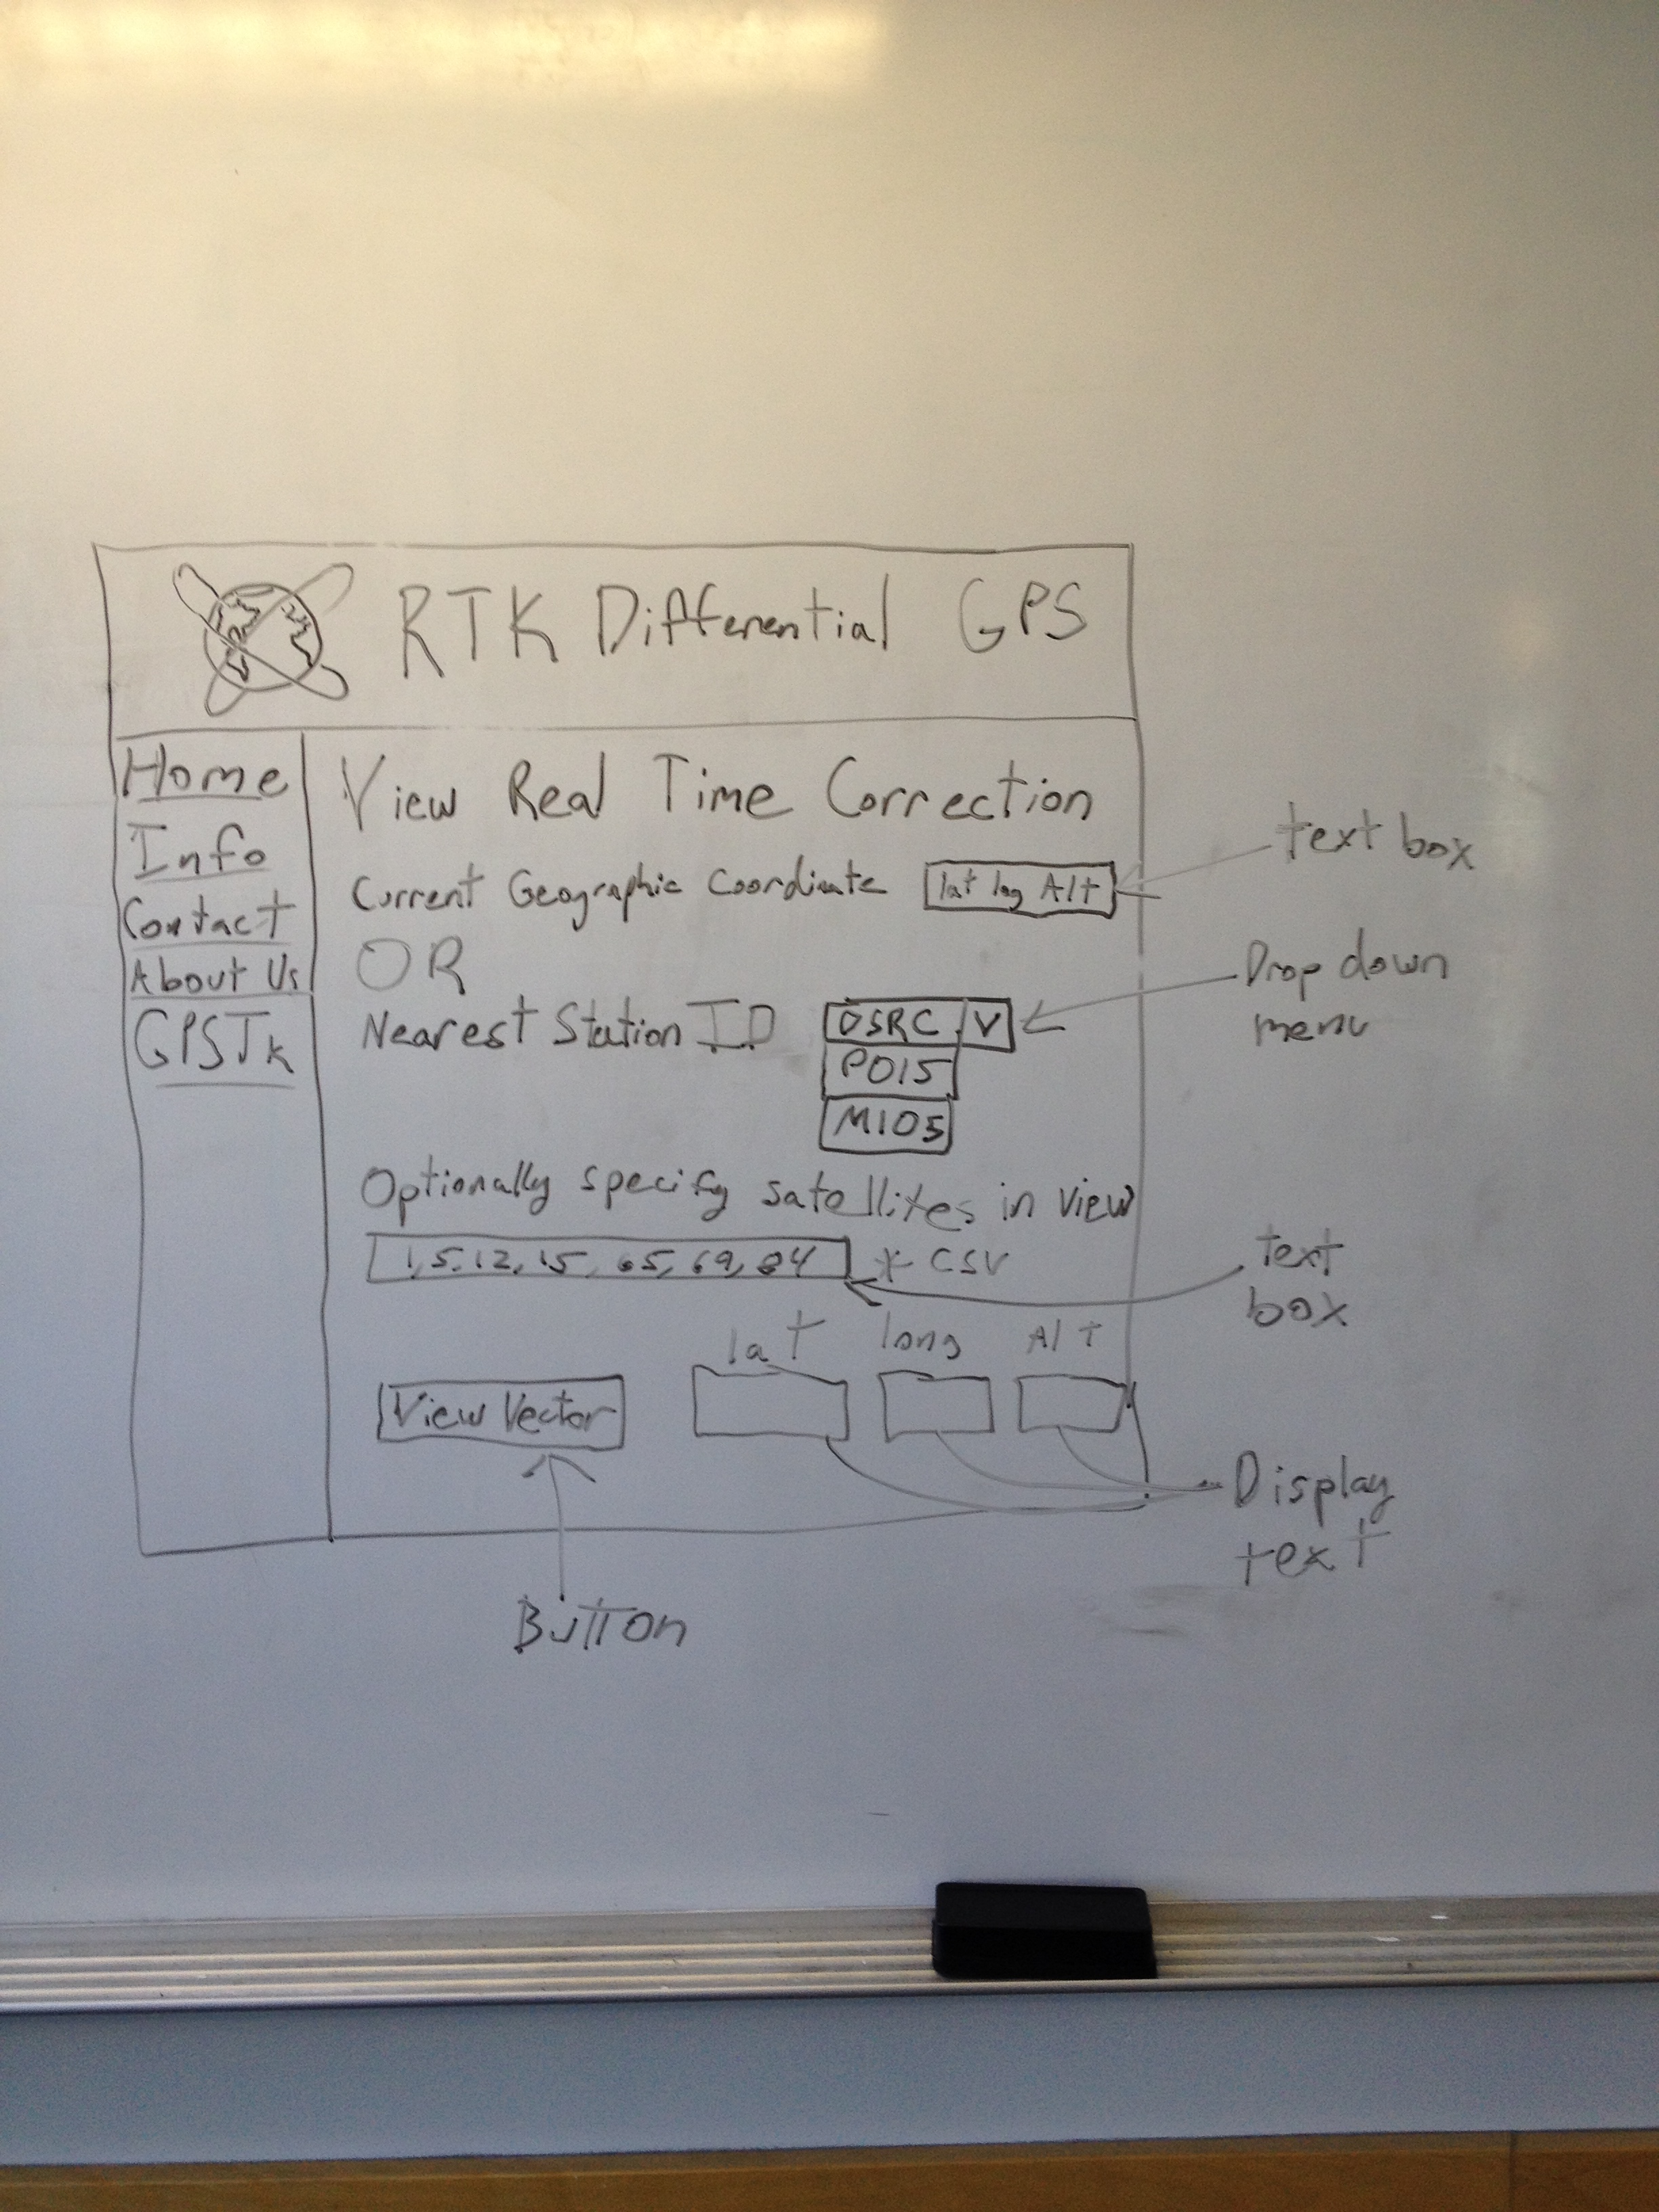 RTK Differential GPS
Home
Info
Contact
About Us
GPSTk
View Real Time Correction
Current Geographic Coordinate
lat log Alt
text box
OR
Nearest Station ID
DSRC V
P015
M105
Drop down
menu
Optionally specify satellites in view
1,5,12,15,65,69,84 * CSV
text
box
View Vector
lat long Alt
Display
text
Button